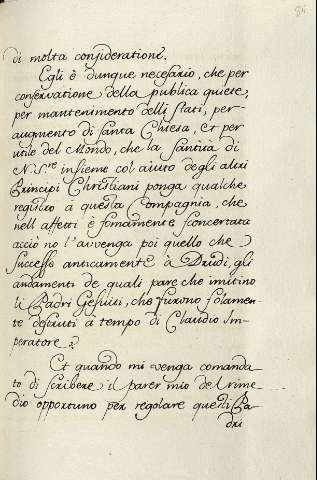 di molta consideratione.
Egli è dunque necesario, che per
conservatione della publica quiete,
per mantenimento delli Stati, per
augmento di Santa Chiesa, et per
utile del Mondo, che la Santità di
N. S.re insieme col aiuto degli altri
Principi Christiani ponga qualche
registro à questa Compagnia, che
nell affetti è somamente sconcertata
acciò no l'avvenga poi quello che
successo anticamente à Drudi, gli
andamenti de quali pare che imitino
li Padri Gesuiti, che furono solamen-
te destruti à tempo di Claudio Im-
peratore.
Et quando mi venga comanda-
to di scribere il parer mio del rime-
dio opportuno per regolare questi Pa-
dri